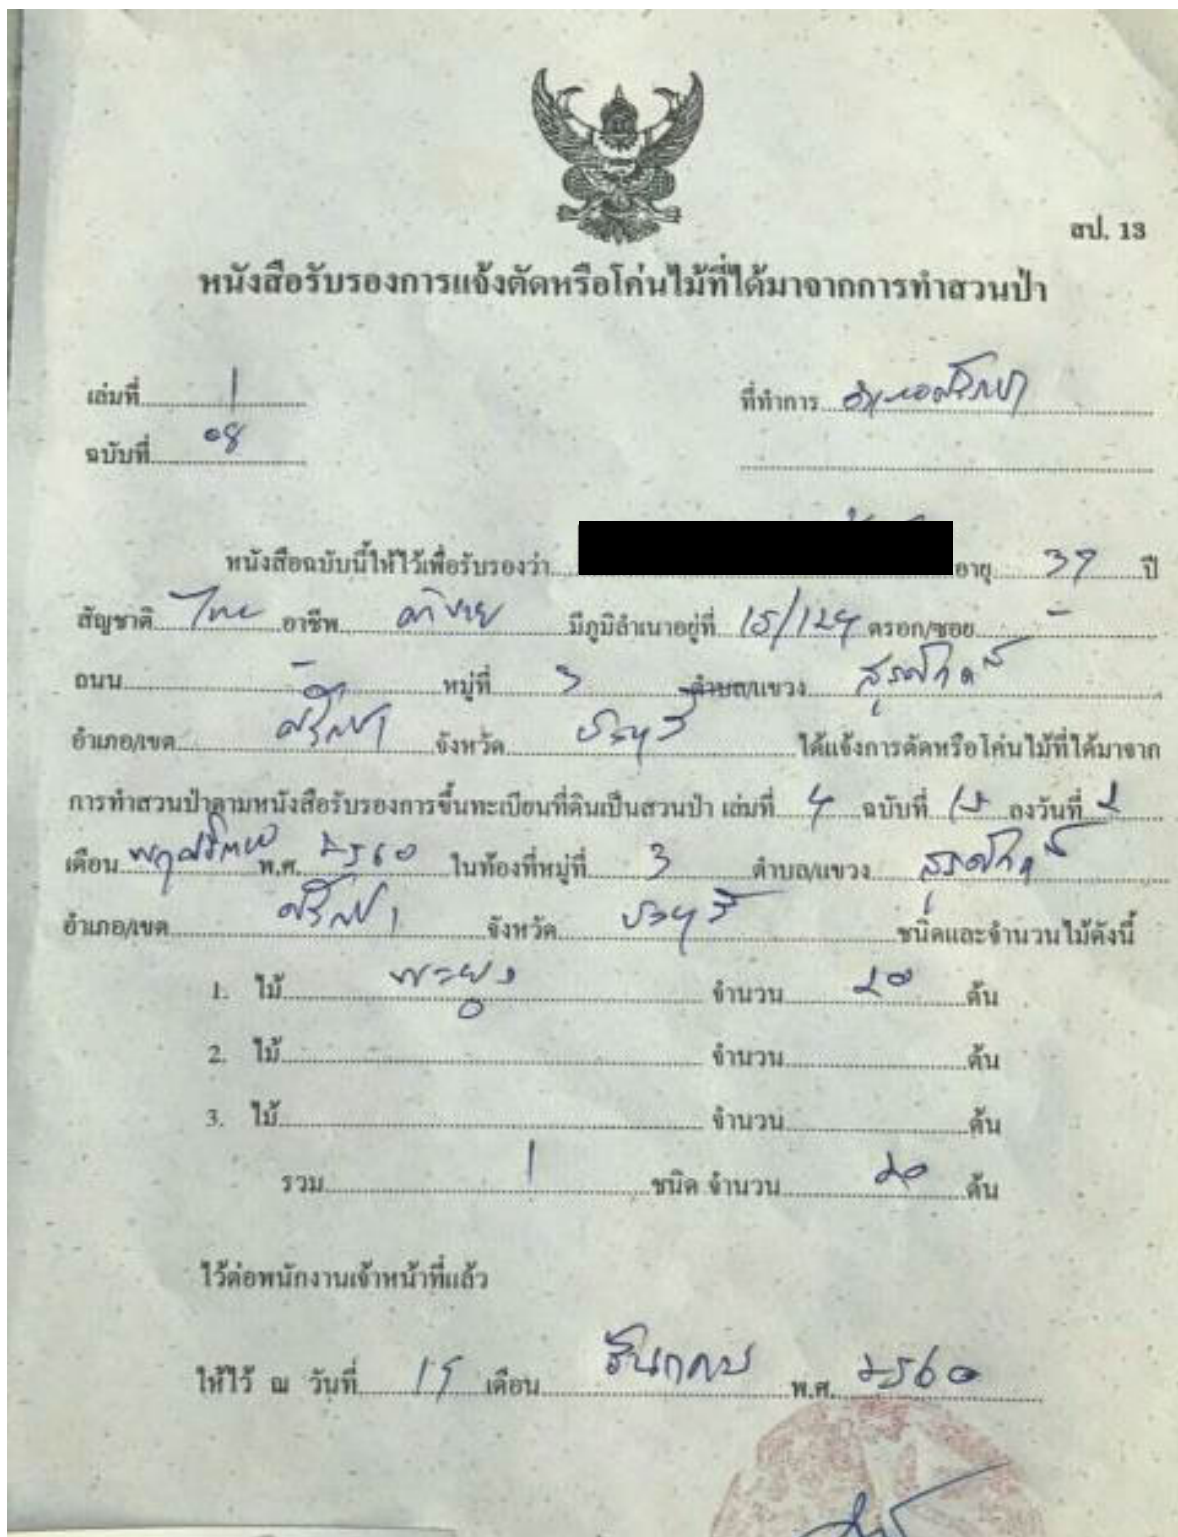 สป. 13
หนังสือรับรองการแจ้งตัดหรือโค่นไม้ที่ได้มาจากการทำสวนป่า
เล่มที่ 1 ที่ทำการ อำเภอศรีราชา
ฉบับที่ 08
หนังสือฉบับนี้ให้ไว้เพื่อรับรองว่า อายุ 37 ปี
สัญชาติ ไทย อาชีพ ค้าขาย มีภูมิลำเนาอยู่ที่ ตรอก/ซอย -
ถนน - หมู่ที่ 3 ตำบล/แขวง สุรศักดิ์
อำเภอ/เขต ศรีราชา จังหวัด ชลบุรี ได้แจ้งการตัดหรือโค่นไม้ที่ได้มาจาก
การทำสวนป่าตามหนังสือรับรองการขึ้นทะเบียนที่ดินเป็นสวนป่า เล่มที่ ฉบับที่ ลงวันที่ 2
เดือน พฤศจิกายน พ.ศ. 2560 ในท้องที่หมู่ที่ 3 ตำบล/แขวง สุรศักดิ์
อำเภอ/เขต ศรีราชา จังหวัด ชลบุรี ชนิดและจำนวนไม้ดังนี้
1. ไม้ พะยูง จำนวน 20 ต้น
2. ไม้ จำนวน ต้น
3. ไม้ จำนวน ต้น
รวม 1 ชนิด จำนวน 20 ต้น
ไว้ต่อพนักงานเจ้าหน้าที่แล้ว
ให้ไว้ ณ วันที่ 15 เดือน ธันวาคม พ.ศ. 2560